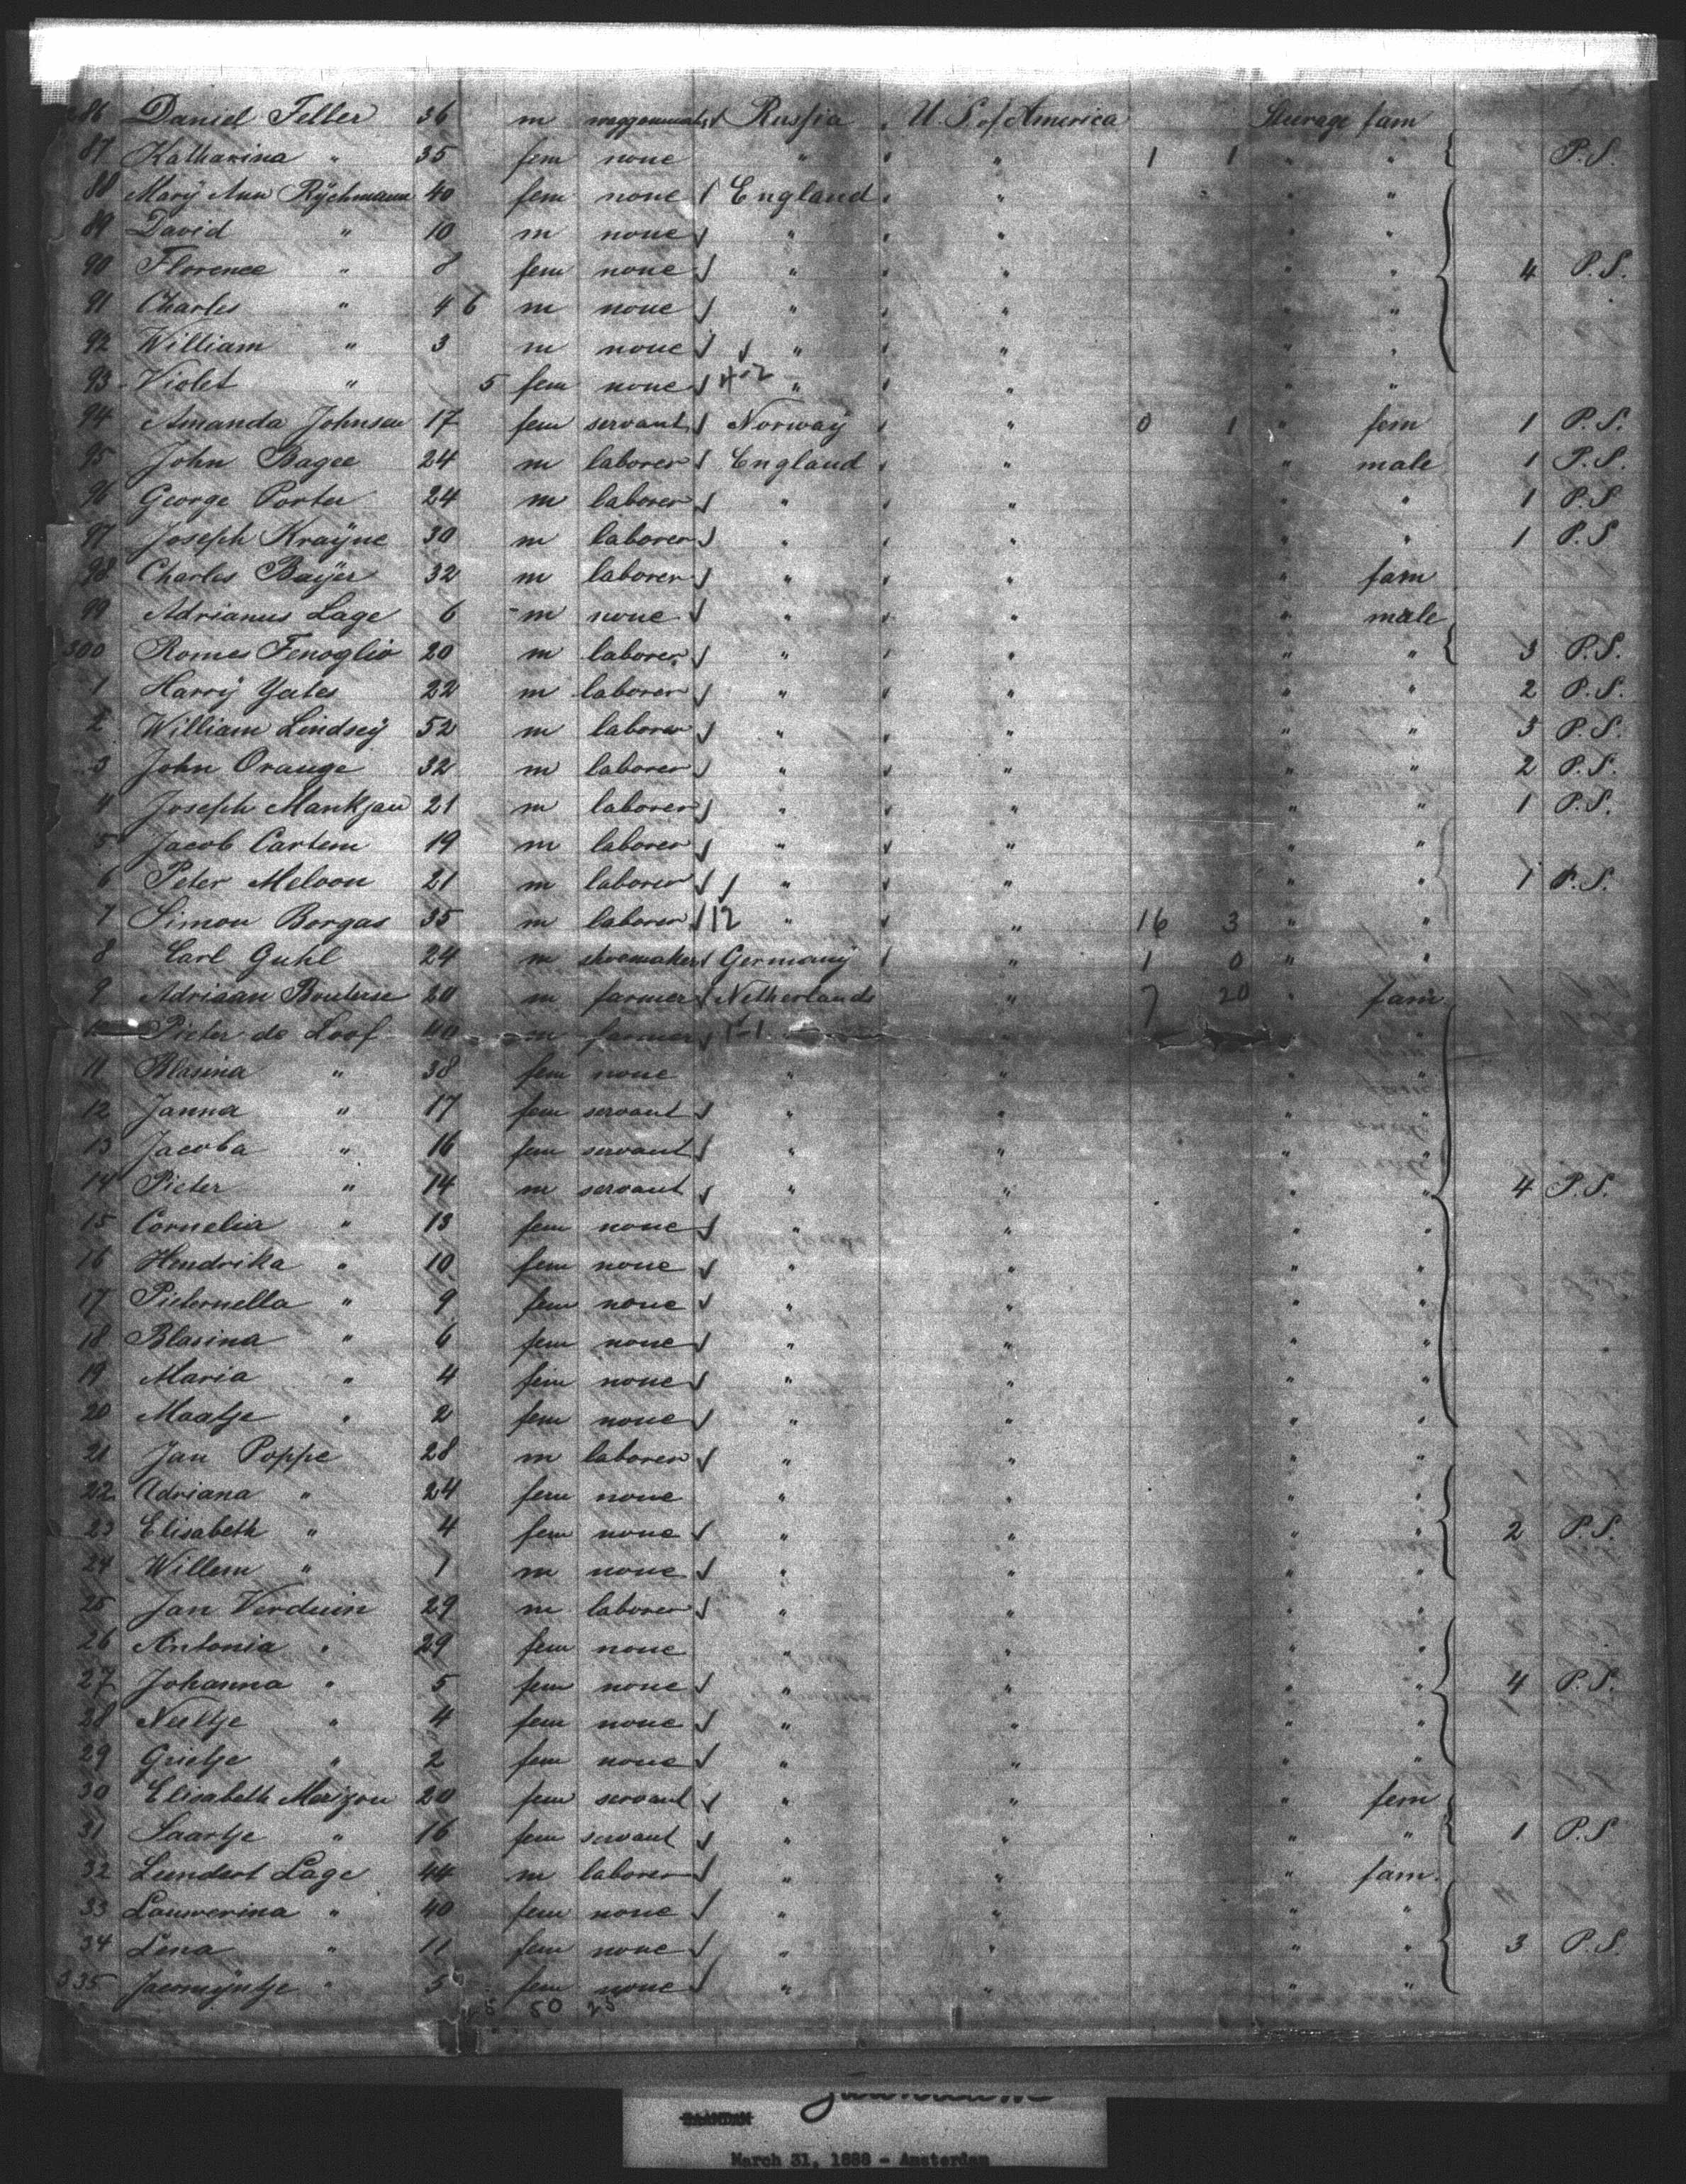 286 Daniel Feller 36 m Russia U. S. of America Steerage fam
87 Katharina " 35 fem none " " 1 1 " " P.S.
88 Mary Ann Rÿchmann 40 fem none England " " "
89 David " 10 m none " " " "
90 Florence " 8 fem none " " " " 4 P.S.
91 Charles " 4 6 m none " " " "
92 William " 3 m none " " " "
93 Violet " 5 fem none 4-2 " " " "
94 Amanda Johnsen 17 fem servant Norway " 0 1 " fem 1 P.S.
95 John Bagee 24 m laborer England " " male 1 P.S.
96 George Porter 24 m laborer " " " " 1 P.S
97 Joseph Kraÿne 30 m laborer " " " " 1 P.S
98 Charles Baÿer 32 m laborer " " " fam
99 Adrianus Lage 6 m none " " " male
300 Romes Fenoglio 20 m laborer " " " " 3 P.S.
1 Harrÿ Yates 22 m laborer " " " " 2 P.S.
2 William Lindseÿ 52 m laborer " " " " 3 P.S.
3 John Orange 32 m laborer " " " " 2 P.S.
4 Joseph Mankjau 21 m laborer " " " " 1 P.S.
5 Jacob Cartem 19 m laborer " " " "
6 Peter Meloon 21 m laborer " " " " 1 P.S.
7 Simon Borgas 35 m laborer 12 " " 16 3 " "
8 Carl Guhl 24 m shoemaker Germanÿ " 1 0 " "
9 Adriaan Bouterse 20 m farmer Netherlands " 7 20 " fam
Pieter de Loof 40 m farmer
11 Blasina " 38 fem none " " " "
12 Janna " 17 fem servant " " " "
13 Jacoba " 16 fem servant " " " "
14 Pieter " 14 m servant " " " " 4 P.S.
15 Cornelia " 13 fem none " " " "
16 Hendrika " 10 fem none " " " "
17 Pieternella " 9 fem none " " " "
18 Blasina " 6 fem none " " " "
19 Maria " 4 fem none " " " "
20 Maatje " 2 fem none " " " "
21 Jan Poppe 28 m laborer " " " "
22 Adriana " 24 fem none " " " "
23 Elisabeth " 4 fem none " " " " 2 P.S.
24 Willem " 1 m none " " " "
25 Jan Verduin 29 m laborer " " " "
26 Antonia " 29 fem none " " " "
27 Johanna " 5 fem none " " " " 4 P.S.
28 Neeltje " 4 fem none " " " "
29 Grietje " 2 fem none " " " "
30 Elisabeth 20 fem servant " " " fem
31 Saartje " 16 fem servant " " " " 1 P.S
32 Leendert Lage 44 m laborer " " " fam.
33 Lauwerina " 40 fem none " " " "
34 Lena " 11 fem none " " " " 3 P.S.
335 Jacomÿntje " 5 fem none " " " "
50 25
ZAANDAM
March 31, 1888 - Amsterdam